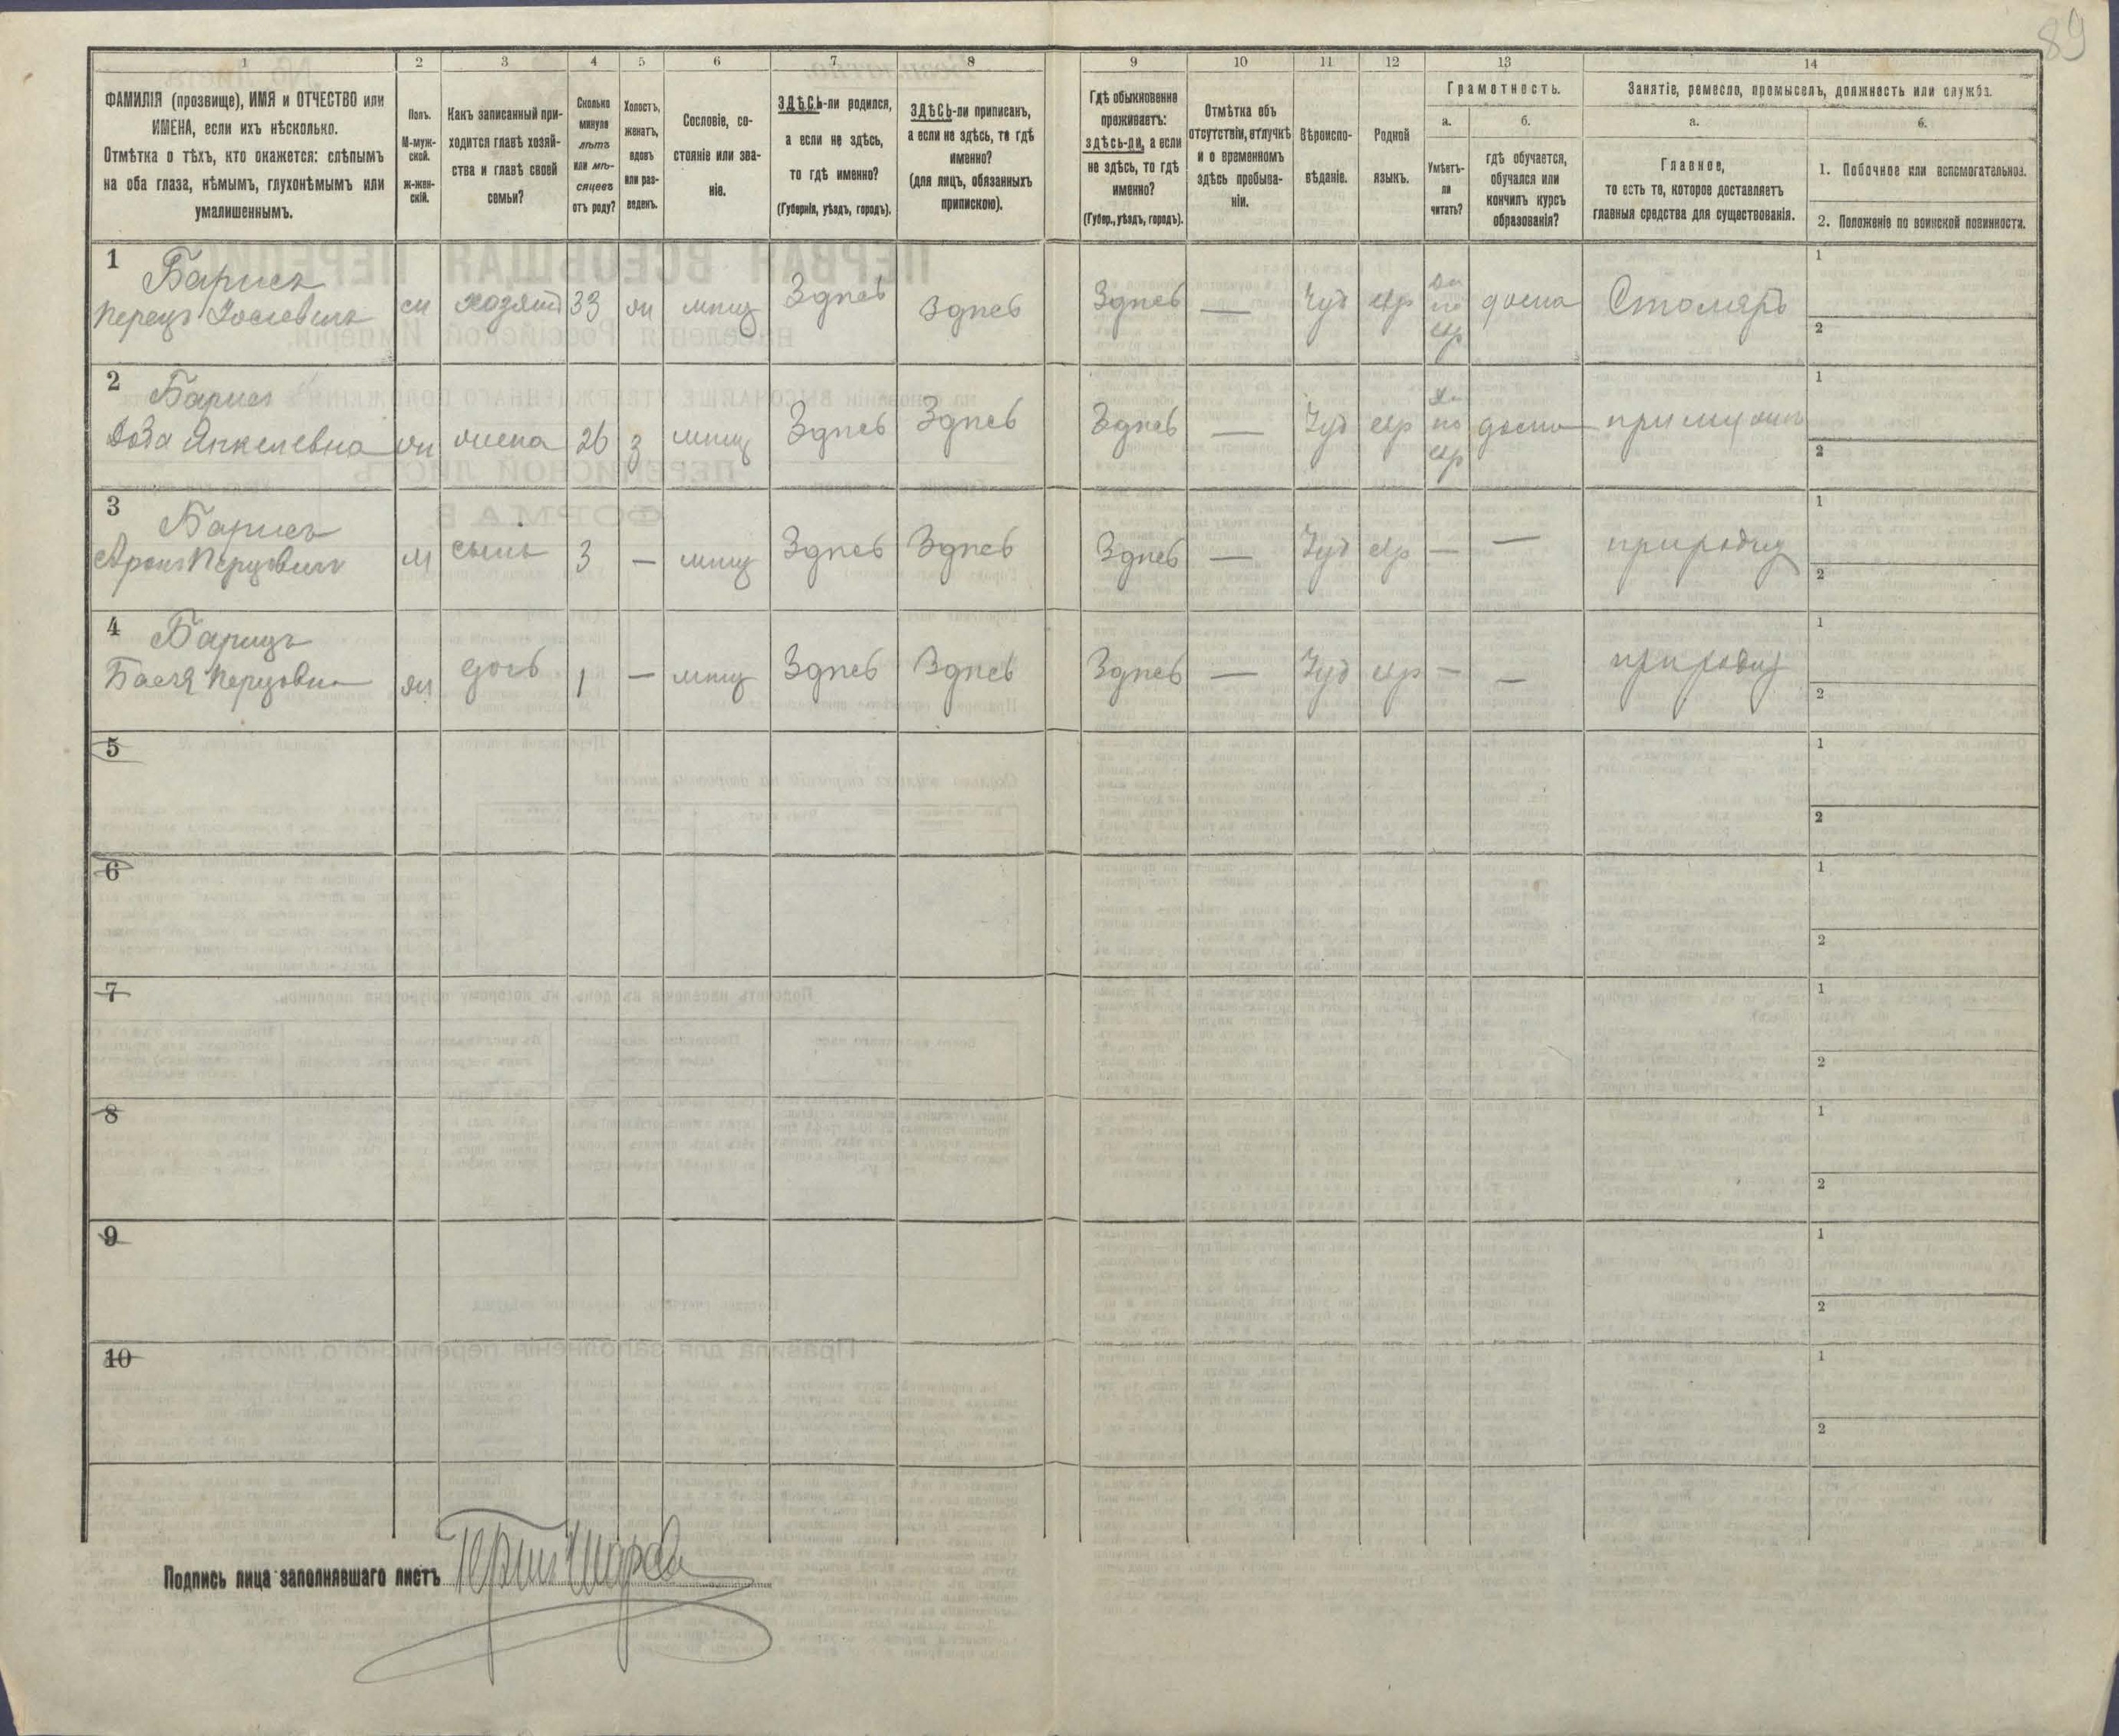 89
1 2 3 4 5 6 7 8 9 10 11 12 13 14
ФАМИЛІЯ (прозвище), ИМЯ и ОТЧЕСТВО или
ИМЕНА, если ихъ нѣсколько.
Отмѣтка о тѣхъ, кто окажется: слѣпымъ
на оба глаза, нѣмымъ, глухонѣмымъ или
умалишеннымъ.
Полъ.
М-муж-
ской.
Ж-жен-
скій.
Какъ записанный при-
ходится главѣ хозяй-
ства и главѣ своей
семьи?
Сколько
минуло
лѣтъ
или мѣ-
сяцевъ
отъ роду?
Холостъ,
женатъ,
вдовъ
или раз-
веденъ.
Сословіе, со-
стояніе или зва-
ніе.
ЗДѢСЬ-ли родился,
а если не здѣсь,
то гдѣ именно?
(Губернія, уѣздъ, городъ).
ЗДѢСЬ-ли приписанъ,
а если не здѣсь, то гдѣ
именно?
(для лицъ, обязанныхъ
припискою).
Гдѣ обыкновенно
проживаетъ:
здѣсь-ли, а если
не здѣсь, то гдѣ
именно?
(Губер., уѣздъ, городъ).
Отмѣтка объ
отсутствіи, отлучкѣ
и о временномъ
здѣсь пребыва-
ніи.
Вѣроиспо-
вѣданіе.
Родной
языкъ.
Грамотность.
а.
Умѣетъ-
ли
читать?
б.
гдѣ обучается,
обучался или
кончилъ курсъ
образованія?
Занятіе, ремесло, промыселъ, должность или служба.
а.
Главное,
то есть то, которое доставляетъ
главныя средства для существованія.
б.
1. Побочное или вспомогательное.
2. Положеніе по воинской повинности.
1 Барисъ
Перецъ Іоселевичъ м хозяинъ 33 ж мѣщ Здпсь Здпсь Здпсь — Іуд евр да по евр дома Столяръ 1 2
2 Барисъ
Янкелевна ж жена 26 з мѣщ Здпсь Здпсь Здпсь — Іуд евр да по евр дома при мужѣ 1 2
3 Барисъ
Аронъ Перцовичъ м сынъ 3 — мѣщ Здпсь Здпсь Здпсь — Іуд евр — — при родит 1 2
4 Барицъ
Бася Перцовна ж дочь 1 — мѣщ Здпсь Здпсь Здпсь — Іуд евр — — при родит 1 2
5 1 2
6 1 2
7 1 2
8 1 2
9 1 2
10 1 2
Подпись лица заполнявшаго листъ